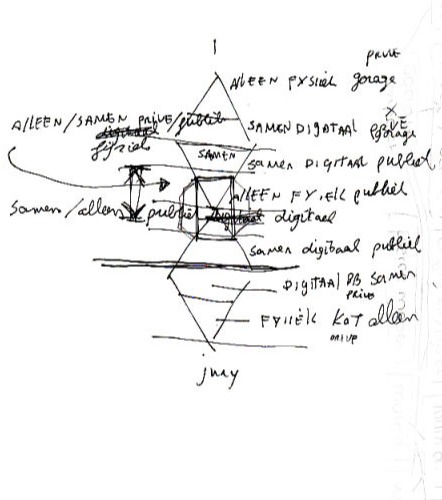 1
PRIVE
AllEEN FYSIEK garage
AllEEN/SAMEN PRIVE/publiek
SAMEN DIGITAAL garage
fijsiek
SAMEN
samen DIGITAAL publiek
AllEEN FYSIEK publiek
Samen/alleen publiek digitael
samen digitaal publiek
DIGITAAl samen
PRIVE
FYSIEK KOT alleen
PRIVE
jury